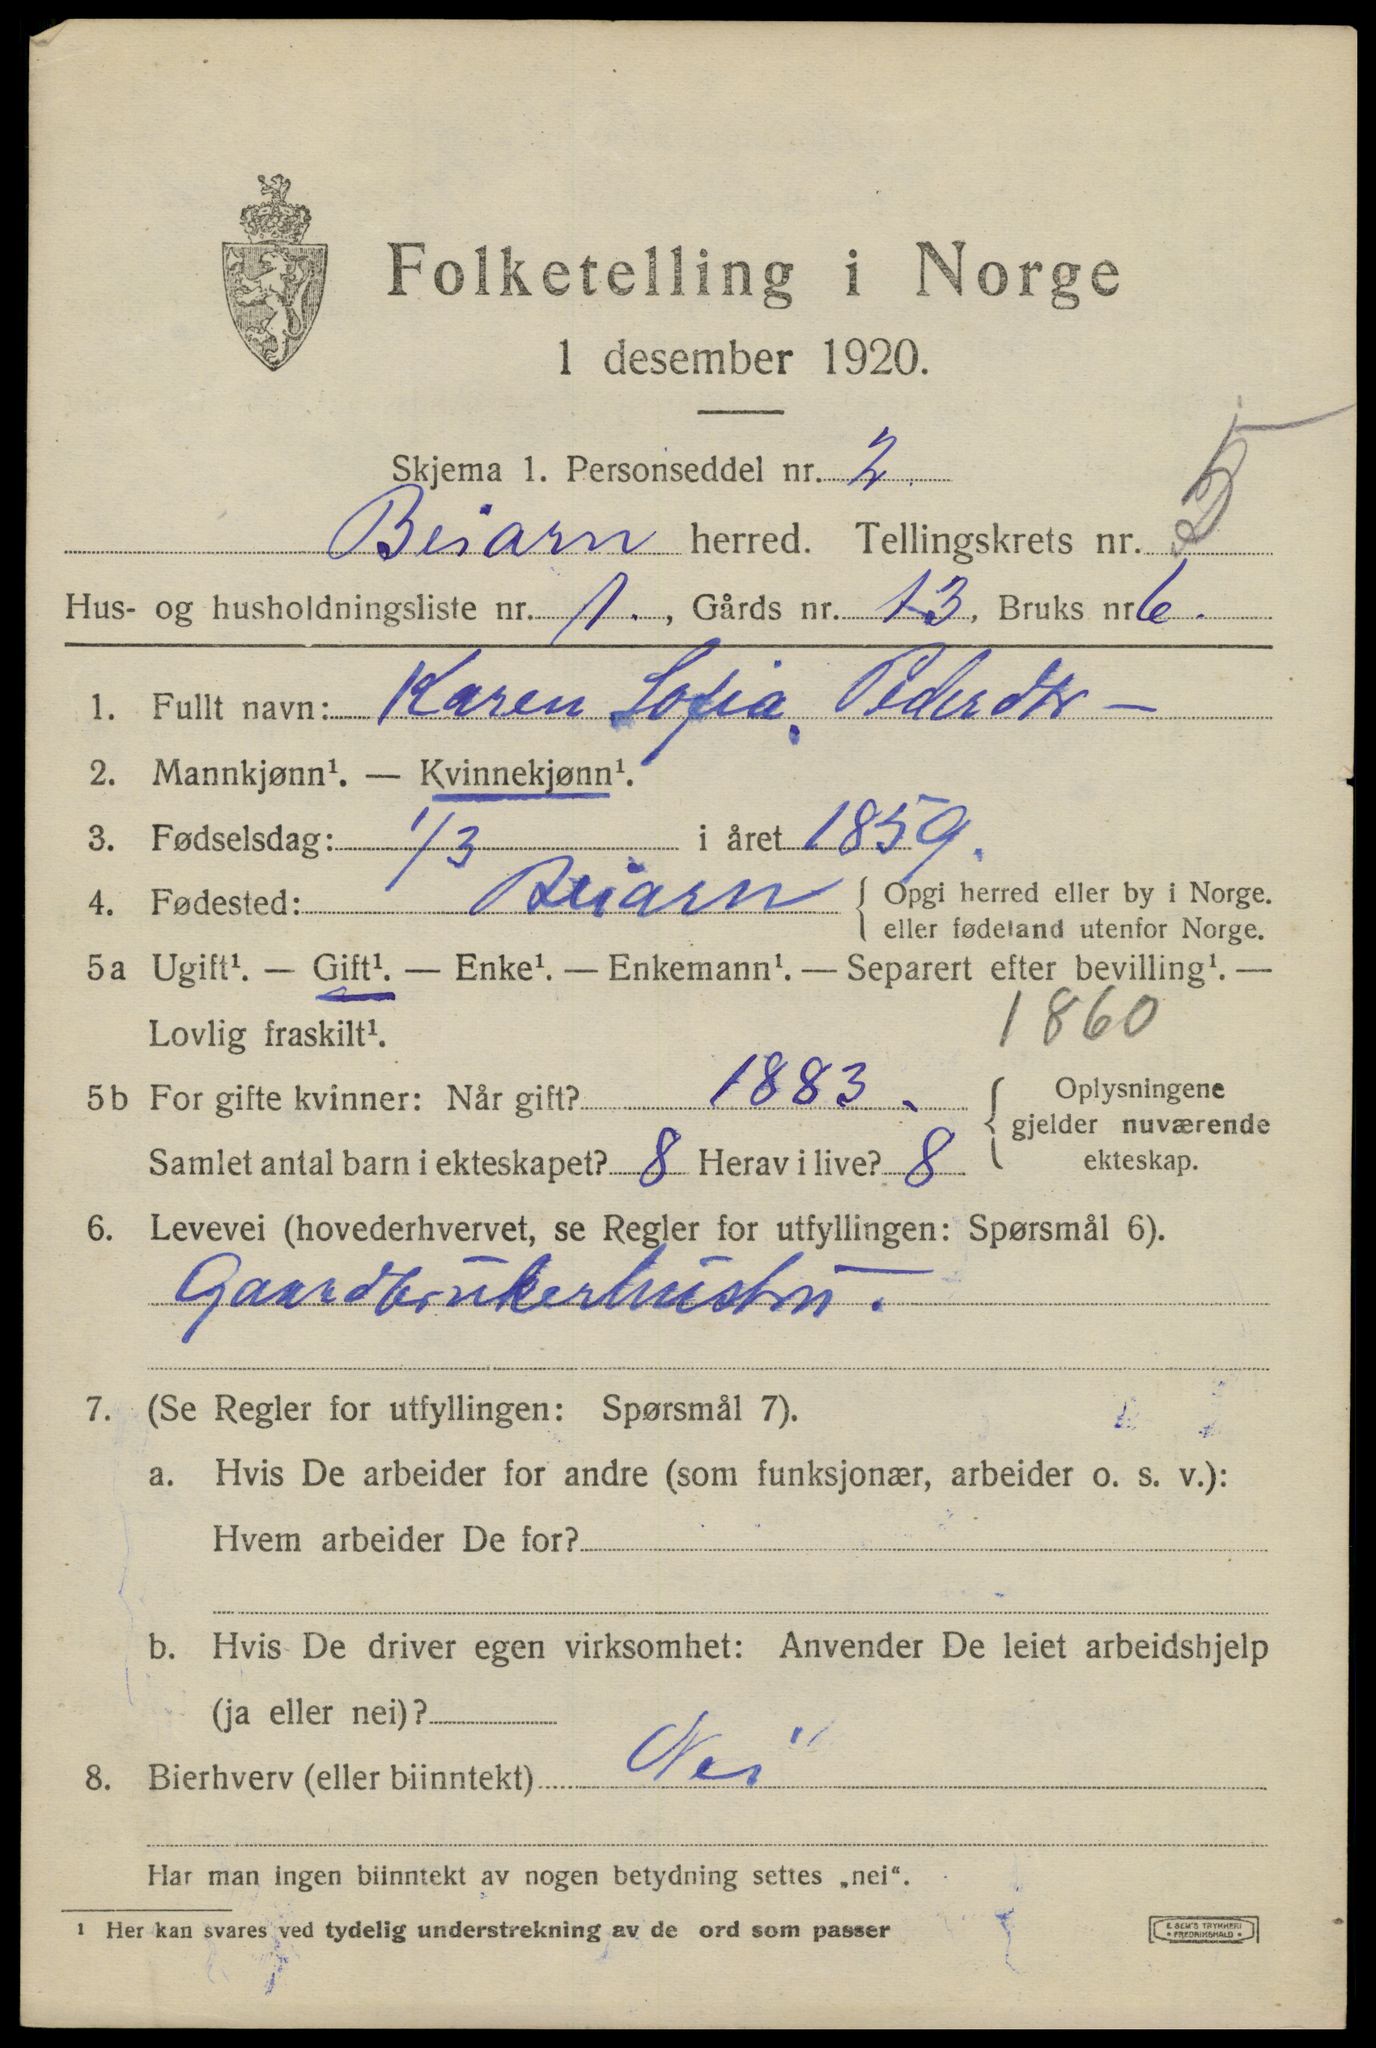 Folketelling i Norge
1 desember 1920.
Skjema 1. Personseddel nr. 2
Beiarn herred. Tellingskrets nr. 5
Hus- og husholdningsliste nr. 1., Gårds nr. 13, Bruks nr 6.
1. Fullt navn: Karen Sofia Pederdtr –
2. Mannkjønn¹. — Kvinnekjønn¹.
3. Fødselsdag: 1/3 i året 1859.
4. Fødested: Beiarn { Opgi herred eller by i Norge.
eller fødeland utenfor Norge.
5a Ugift¹. — Gift¹. — Enke¹. — Enkemann¹. — Separert efter bevilling¹. —
Lovlig fraskilt¹. 1860
5b For gifte kvinner: Når gift? 1883. { Oplysningene
gjelder nuværende
Samlet antal barn i ekteskapet? 8 Herav i live? 8 ekteskap.
6. Levevei (hovederhvervet, se Regler for utfyllingen: Spørsmål 6).
Gaardbrukerhustru.
7. (Se Regler for utfyllingen: Spørsmål 7).
a. Hvis De arbeider for andre (som funksjonær, arbeider o. s. v.):
Hvem arbeider De for?
b. Hvis De driver egen virksomhet: Anvender De leiet arbeidshjelp
(ja eller nei)?
8. Bierhverv (eller biinntekt) Nei
Har man ingen biinntekt av nogen betydning settes „nei“.
¹ Her kan svares ved tydelig understrekning av de ord som passer
E. SEM'S TRYKKERI
• FREDRIKSHALD •